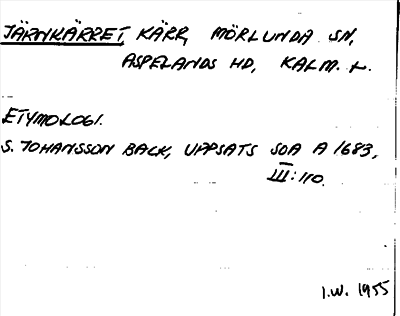 JÄRNKÄRRET, KÄRR, MÖRLUNDA SN,
ASPELANDS HD, KALM. L.
ETYMOLOGI.
S. JOHANSSON BACK, UPPSATS SOA A 1683,
III:110.
I.W. 1955